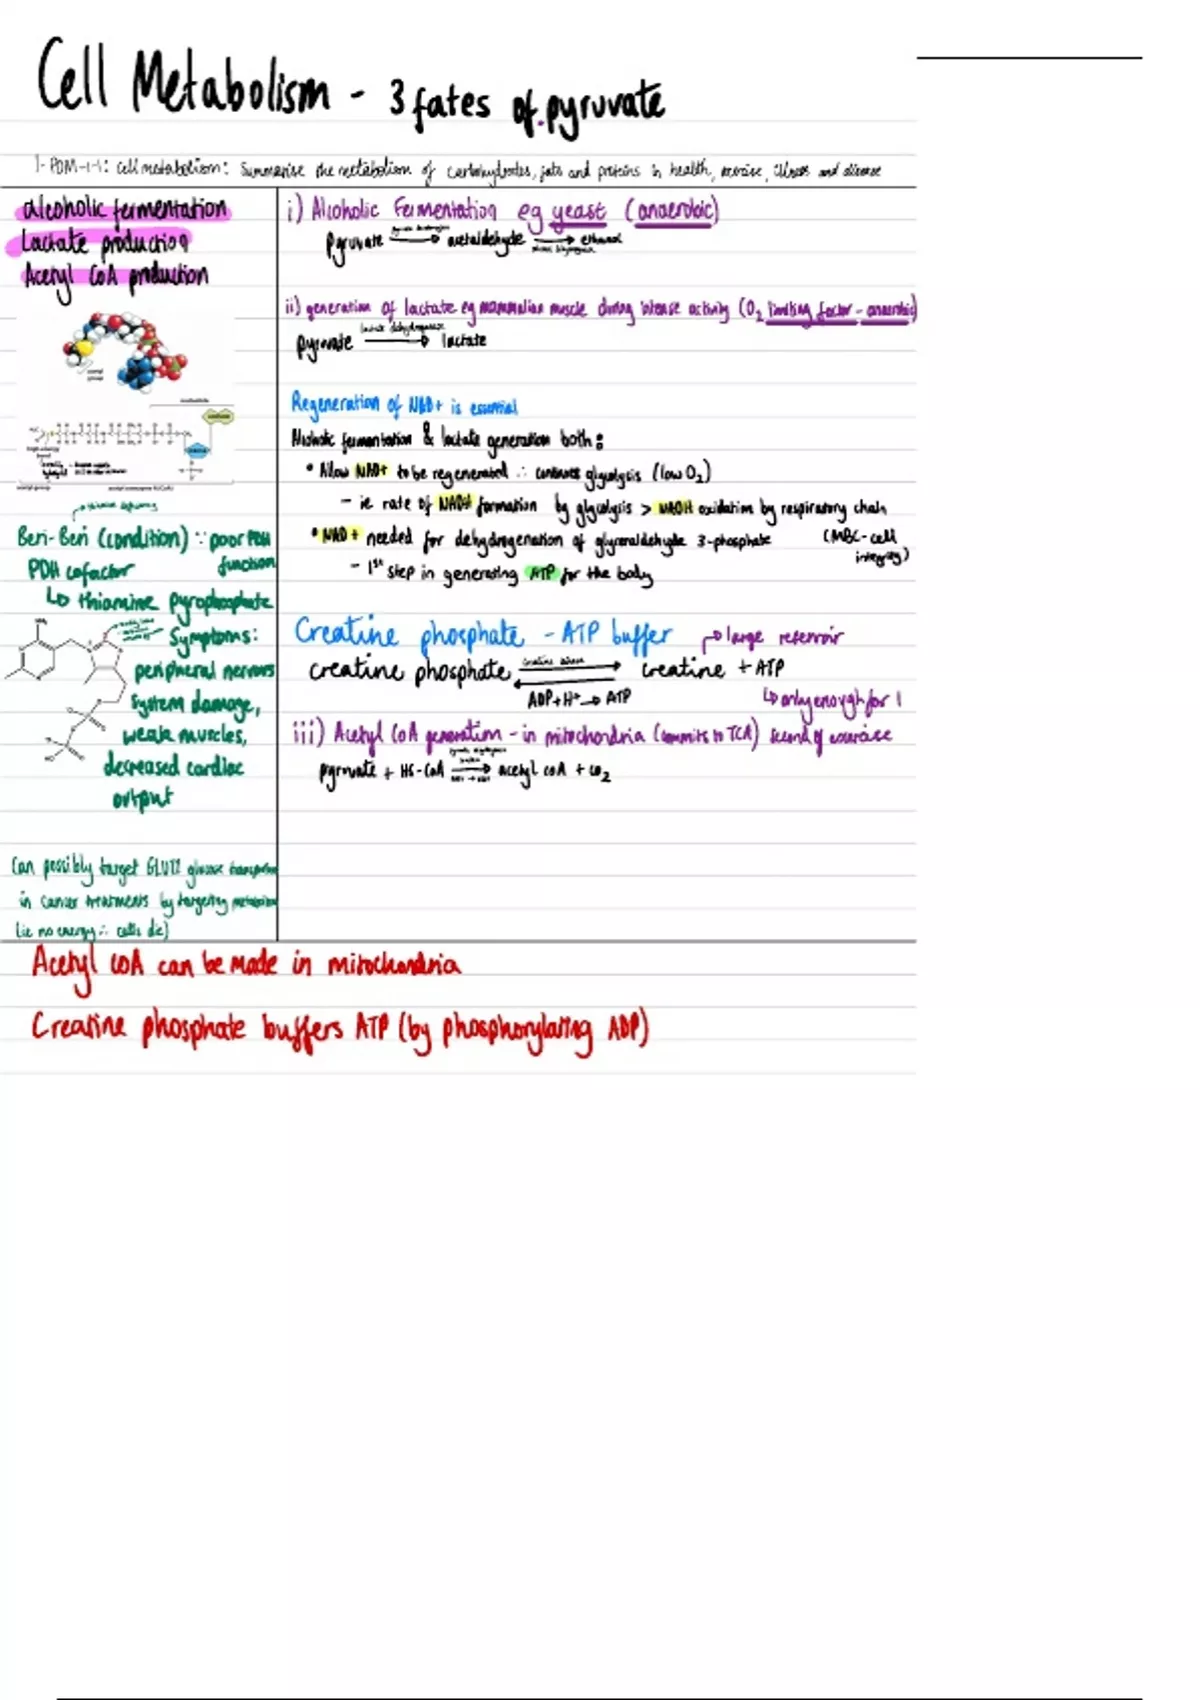 Cell Metabolism - 3 fates of pyruvate
1-PDM-1-1: Cell metabolism: Summarise the metabolism of carbohydrates, fats and proteins in health, exercise, illness and disease
alcoholic fermentation
Lactate production
Acetyl CoA production
Beri-Beri (condition) ∵ poor PDH function
PDH cofactor
↳ thiamine pyrophosphate
Symptoms:
peripheral nervous
system damage,
weak muscles,
decreased cardiac
output
Can possibly target GLUT1 glucose
in cancer treatments by targeting
(ie no energy ∴ cells die)
i) Alcoholic Fermentation eg yeast (anaerobic)
pyruvate → acetaldehyde → ethanol
ii) generation of lactate eg mammalian muscle during intense activity (O2 limiting factor - anaerobic)
lactate dehydrogenase
pyruvate → lactate
Regeneration of NAD+ is essential
Alcoholic fermentation & lactate generation both:
• Allow NAD+ to be regenerated ∴ continues glycolysis (low O2)
- ie rate of NADH formation by glycolysis > NADH oxidation by respiratory chain
• NAD+ needed for dehydrogenation of glyceraldehyde 3-phosphate (MBC-cell
integrity)
- 1st step in generating ATP for the body
Creatine phosphate - ATP buffer → large reservoir
creatine phosphate ⇌ creatine + ATP
ADP+H+ → ATP
↳ only enough for 1
second of exercise
iii) Acetyl CoA generation - in mitochondria (commits to TCA)
pyruvate + HS-CoA → acetyl coA + CO2
Acetyl coA can be made in mitochondria
Creatine phosphate buffers ATP (by phosphorylating ADP)